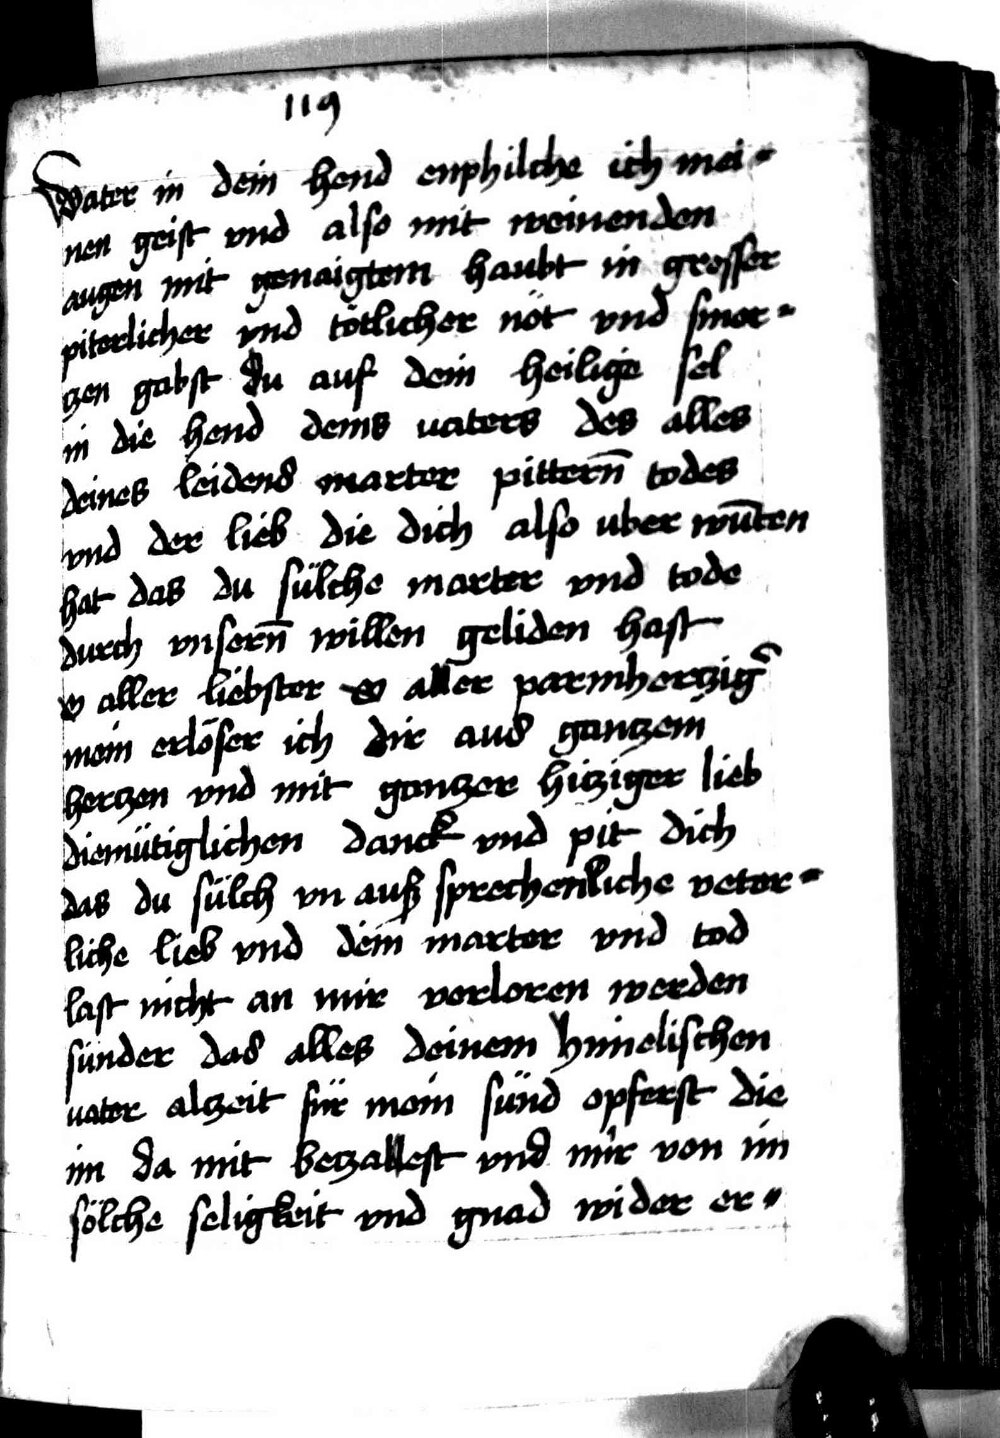 119
Vater in dein hend enphilche ich mei-
nen geist vnd also mit weinenden
augen mit genaigtem haubt in grosser
piterlicher vnd tötlicher nöt vnd smer-
tzen gabst du auf dein heilige sel
in die hend deins uaters des alles
deines leidens marter pittern̄ todes
vnd der lieb die dich also uber wūten
hat das du sülche marter vnd tode
durch vnsern̄ willen geliden hast
o aller liebster o aller parmhertzig
mein erlöser ich dir aus gantzem
hertzen vnd mit gantzer hitziger lieb
diemütiglichen danck vnd pit dich
das du sülch vn auß sprechenliche veter-
liche lieb vnd dein marter vnd tod
last nicht an mir verloren werden
sunder das alles deinem himelischen
uater altzeit für mein sünd opferst die
im da mit betzallest vnd mir von im
sölche seligkeit vnd gnad wider er-